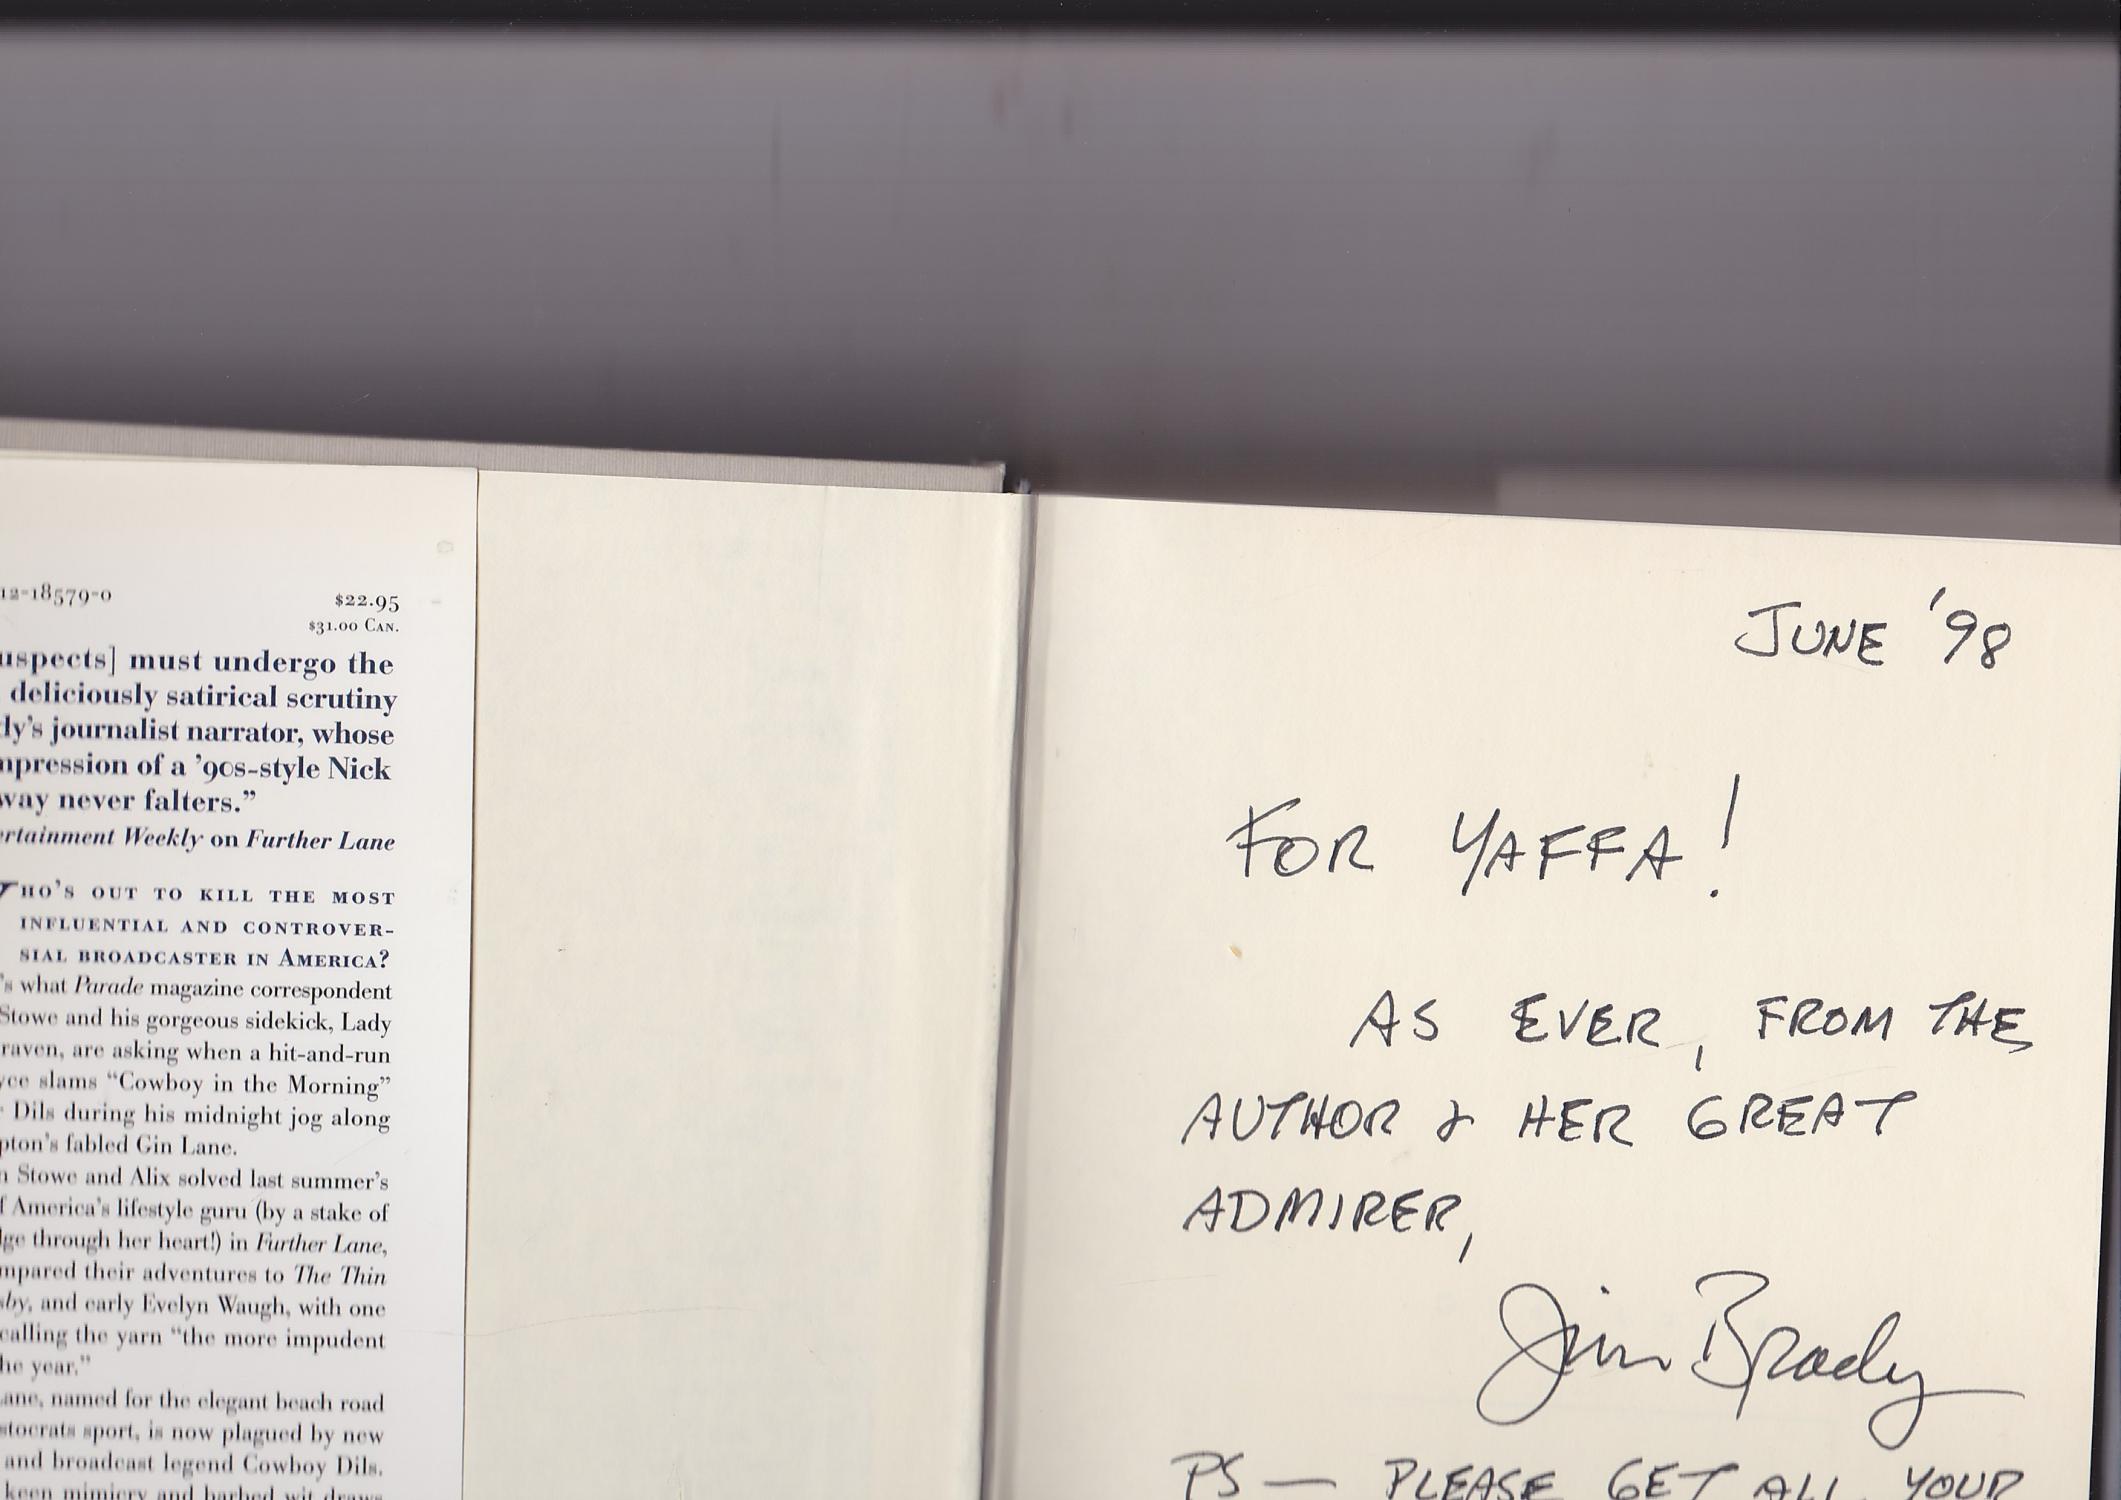 12-18579-0
$22.95
$31.00 CAN.
uspects] must undergo the
deliciously satirical scrutiny
dy's journalist narrator, whose
mpression of a '90s-style Nick
way never falters."
ertainment Weekly on Further Lane
HO'S OUT TO KILL THE MOST
INFLUENTIAL AND CONTROVER-
SIAL BROADCASTER IN AMERICA?
's what Parade magazine correspondent
Stowe and his gorgeous sidekick, Lady
raven, are asking when a hit-and-run
yce slams "Cowboy in the Morning"
Dils during his midnight jog along
pton's fabled Gin Lane.
n Stowe and Alix solved last summer's
f America's lifestyle guru (by a stake of
dge through her heart!) in Further Lane,
mpared their adventures to The Thin
sby, and early Evelyn Waugh, with one
calling the yarn "the more impudent
he year."
Lane, named for the elegant beach road
stocrats sport, is now plagued by new
and broadcast legend Cowboy Dils.
keen mimicry and barbed wit draws
JUNE '98
FOR YAFFA!
AS EVER, FROM THE
AUTHOR & HER GREAT
ADMIRER,
Jim Brady
PS — PLEASE GET ALL YOUR